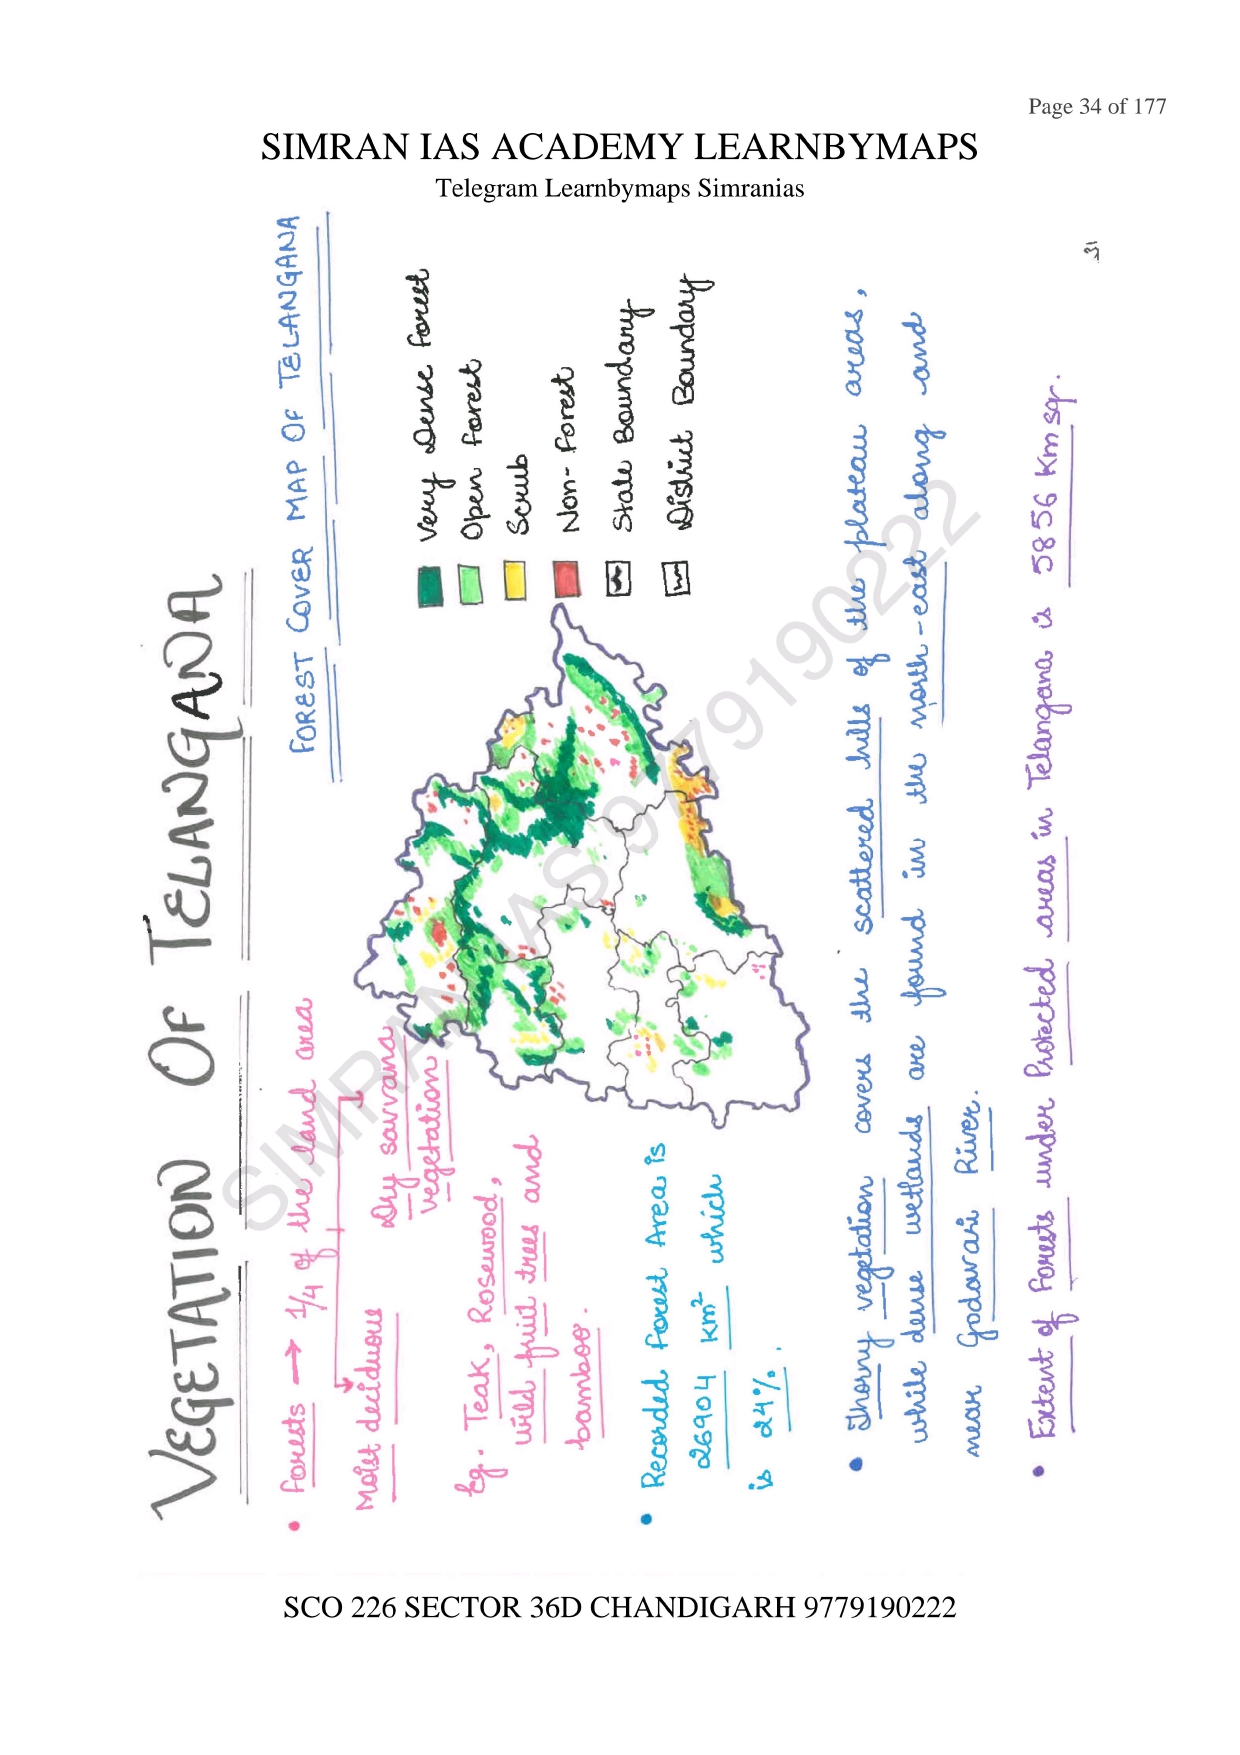 Page 34 of 177
SIMRAN IAS ACADEMY LEARNBYMAPS
Telegram Learnbymaps Simranias
VEGETATION OF TELANGANA
• Forests → 1/4 of the land area
Moist deciduous
Dry savvana
vegetation
Eg. Teak, Rosewood,
wild fruit trees and
bamboo.
• Recorded Forest Area is
26904 km² which
is 24%.
FOREST COVER MAP OF TELANGANA
Very Dense Forest
Open Forest
Scrub
Non-Forest
State Boundary
District Boundary
• Thorny vegetation covers the scattered hills of the plateau areas,
while dense wetlands are found in the north-east along and
near Godavari River.
• Extent of Forests under Protected areas in Telangana is 5856 Km sq.
SIMRAN IAS 9779190222
SCO 226 SECTOR 36D CHANDIGARH 9779190222